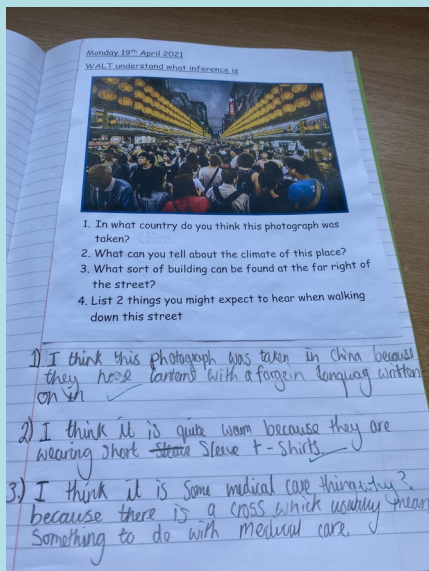 Monday 19th April 2021
WALT understand what inference is
1. In what country do you think this photograph was
taken? China
2. What can you tell about the climate of this place?
3. What sort of building can be found at the far right of
the street?
4. List 2 things you might expect to hear when walking
down this street
1) I think this photograph was taken in China because
they have lanterns with a forgein languag written
on
2) I think it is quite warm because they are
wearing short Sleeve t-shirts.
3.) I think it is some medical care thing why?
because there is a cross which usually mean
Something to do with medical care.